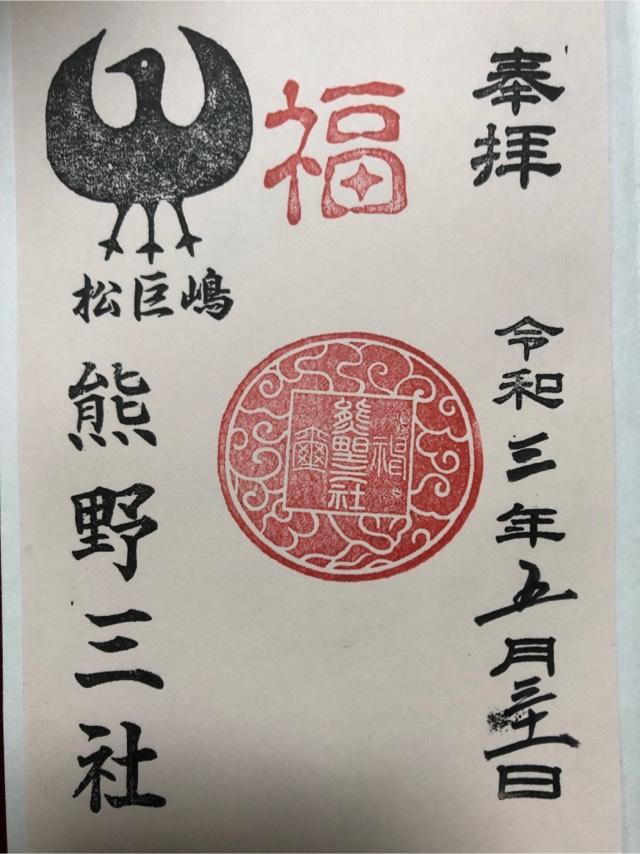 奉拝
令和三年五月三十一日
福
熊野三社
松巨嶋
熊野三社